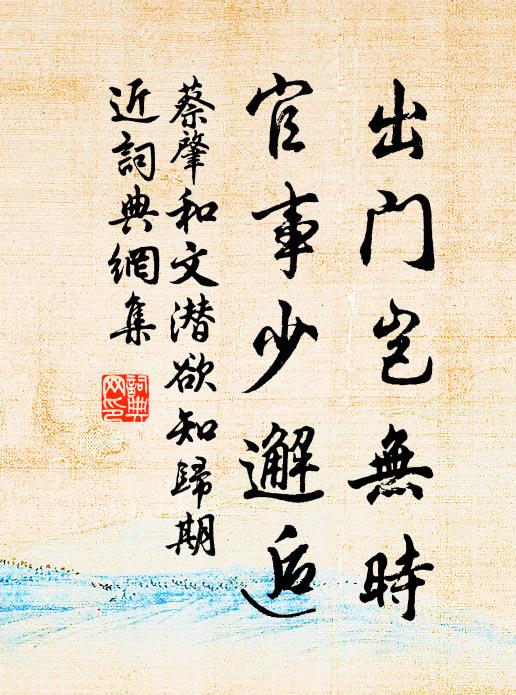 出門岂無時
官事少邂逅
蔡肇和文潜欲知歸期
近詞典網集
詞典网印